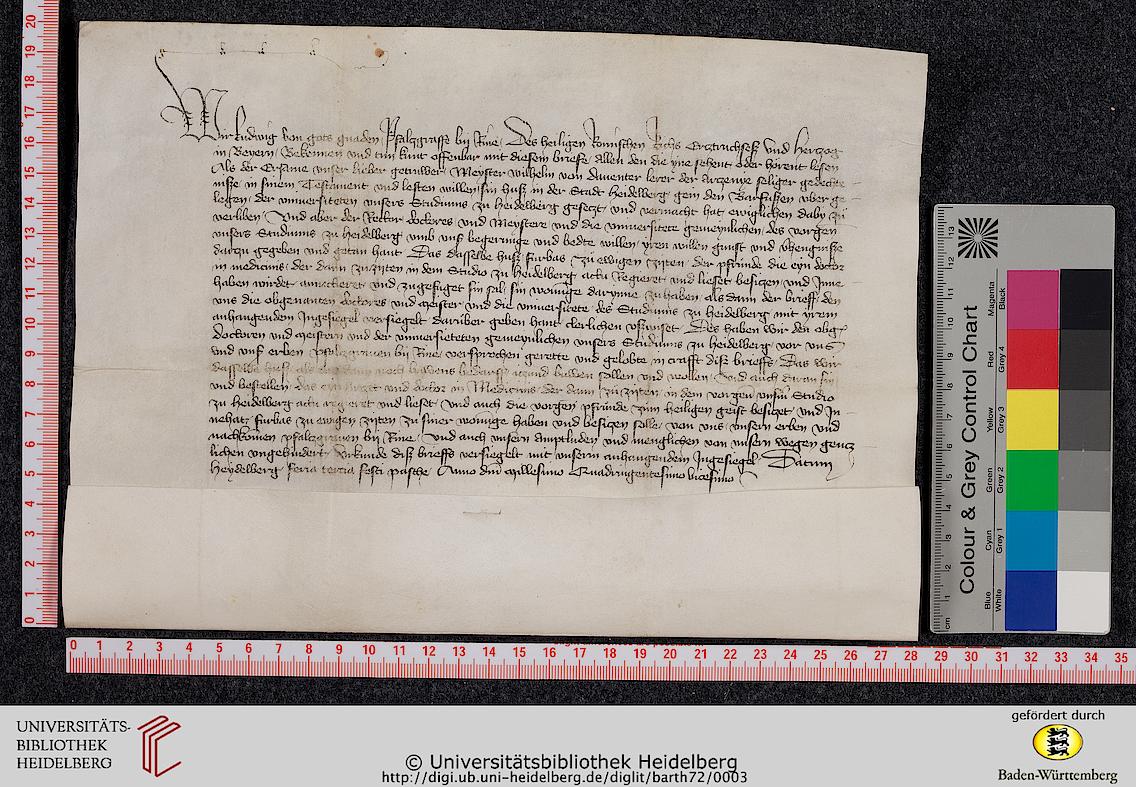 Wir Ludwig von gots gnaden Pfaltzgraffe bij Rine Des heiligen Romischen Richs Ertztruchseß und Hertzog
in Beyern Bekennen und tun kunt offenbar mit diesem brieffe allen den die yne sehent oder horent lesen
Als der Ersame unser lieber getruwer Meyster Wilhelm von Dauenter lerer der Artzenye seliger gedecht
niße in sinem Testament und lesten willen sin huß in der Stadt Heidelberg gein den Barfussen uber ge
legen der universiteten unsers Studiums zu Heidelberg gesetzt und vermacht hat ewiglichen daby zu
verliben Und aber der Rector doctores und Meystere und die universitete gemeynlichen des vorgen
unsers Studiums zu Heidelberg umb unß begerunge und bedte willen yren willen gunst und verhengniße
dartzu gegeben und getan hant Das dasselbe huß furbas zu ewigen zyten der pfrunde die eyn doctor
in medicinis der dann zu zyten in dem Studio zu Heidelberg actu Regieret und lieset besitzen und Inne
haben wirdet und zugefuget sin sal sin wonunge darynne zu haben als dann der brieff den
uns die obgenanten doctores und meister und die universitete des Studiums zu Heidelberg mit yrem
anhangendem Ingesiegel versiegelt darüber geben hant clerlichen ußwiset Des haben wir den obgen
doctoren und meistern und der universieteten gemeynlichen unsers Studiums zu Heidelberg vor uns
und unß erben pfaltzgraven bij Rine versprochen gerette und gelobte in crafft diß brieffs Das wir
dasselbe huß als buwens bedarff buwen sollen und wollen Und auch daran sin
und bestellen das eyn und doctor in Medicinis der dann zu zyten in dem vorgen unserm Studio
zu Heidelberg actu regieret und lieset und auch die vorgen pfrunde zum heiligen geist besitzet und In
nehat furbas zu ewigen zyten zu siner wonunge haben und besitzen solle von uns unsern erben und
nachkomen pfaltzgraven bij Rine und auch unsern amptluden und menglichen von unsern wegen gentz
lichen ungehindert Urkunde diß brieffs versiegelt mit unserm anhangendem Ingesiegel Datum
Heydelberg feria tertia festi pasche Anno dni Millesimo Quadringentesimo vicesimo
Colour & Grey Control Chart
Blue Cyan Green Yellow Red Magenta
White Grey 1 Grey 2 Grey 3 Grey 4 Black
UNIVERSITÄTS-
BIBLIOTHEK
HEIDELBERG
© Universitätsbibliothek Heidelberg
http://digi.ub.uni-heidelberg.de/diglit/barth72/0003
gefördert durch
Baden-Württemberg